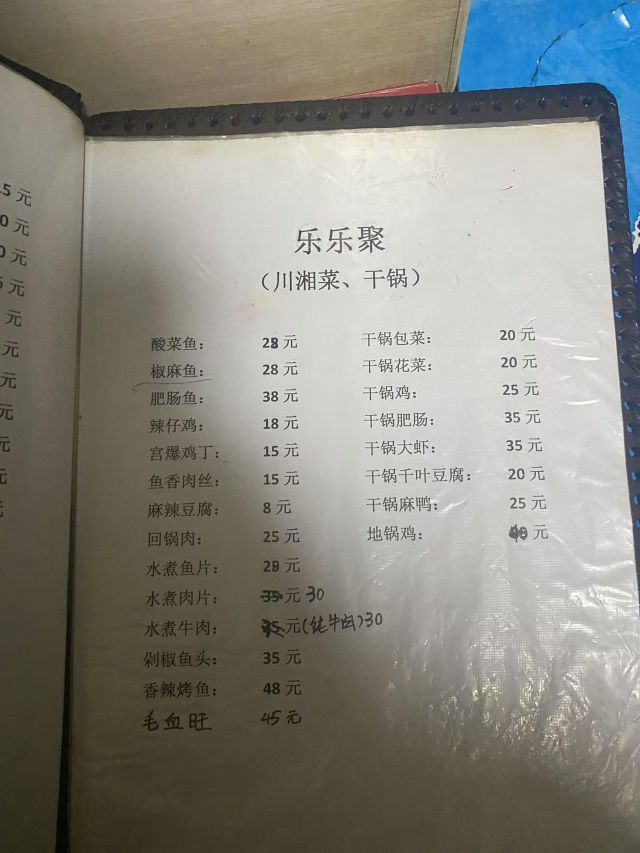 乐乐聚
（川湘菜、干锅）
酸菜鱼： 28元
椒麻鱼： 28元
肥肠鱼： 38元
辣仔鸡： 18元
宫爆鸡丁： 15元
鱼香肉丝： 15元
麻辣豆腐： 8元
回锅肉： 25元
水煮鱼片： 28元
水煮肉片： 35元 30
水煮牛肉： 35元(纯牛肉)30
剁椒鱼头： 35元
香辣烤鱼： 48元
毛血旺 45元
干锅包菜： 20元
干锅花菜： 20元
干锅鸡： 25元
干锅肥肠： 35元
干锅大虾： 35元
干锅千叶豆腐： 20元
干锅麻鸭： 25元
地锅鸡： 元